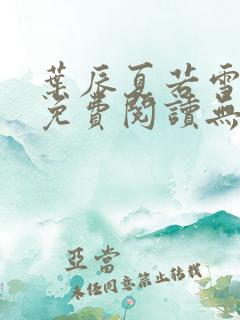 葉辰夏若雪
免費閱讀無
亞當
未經同意禁止轉載